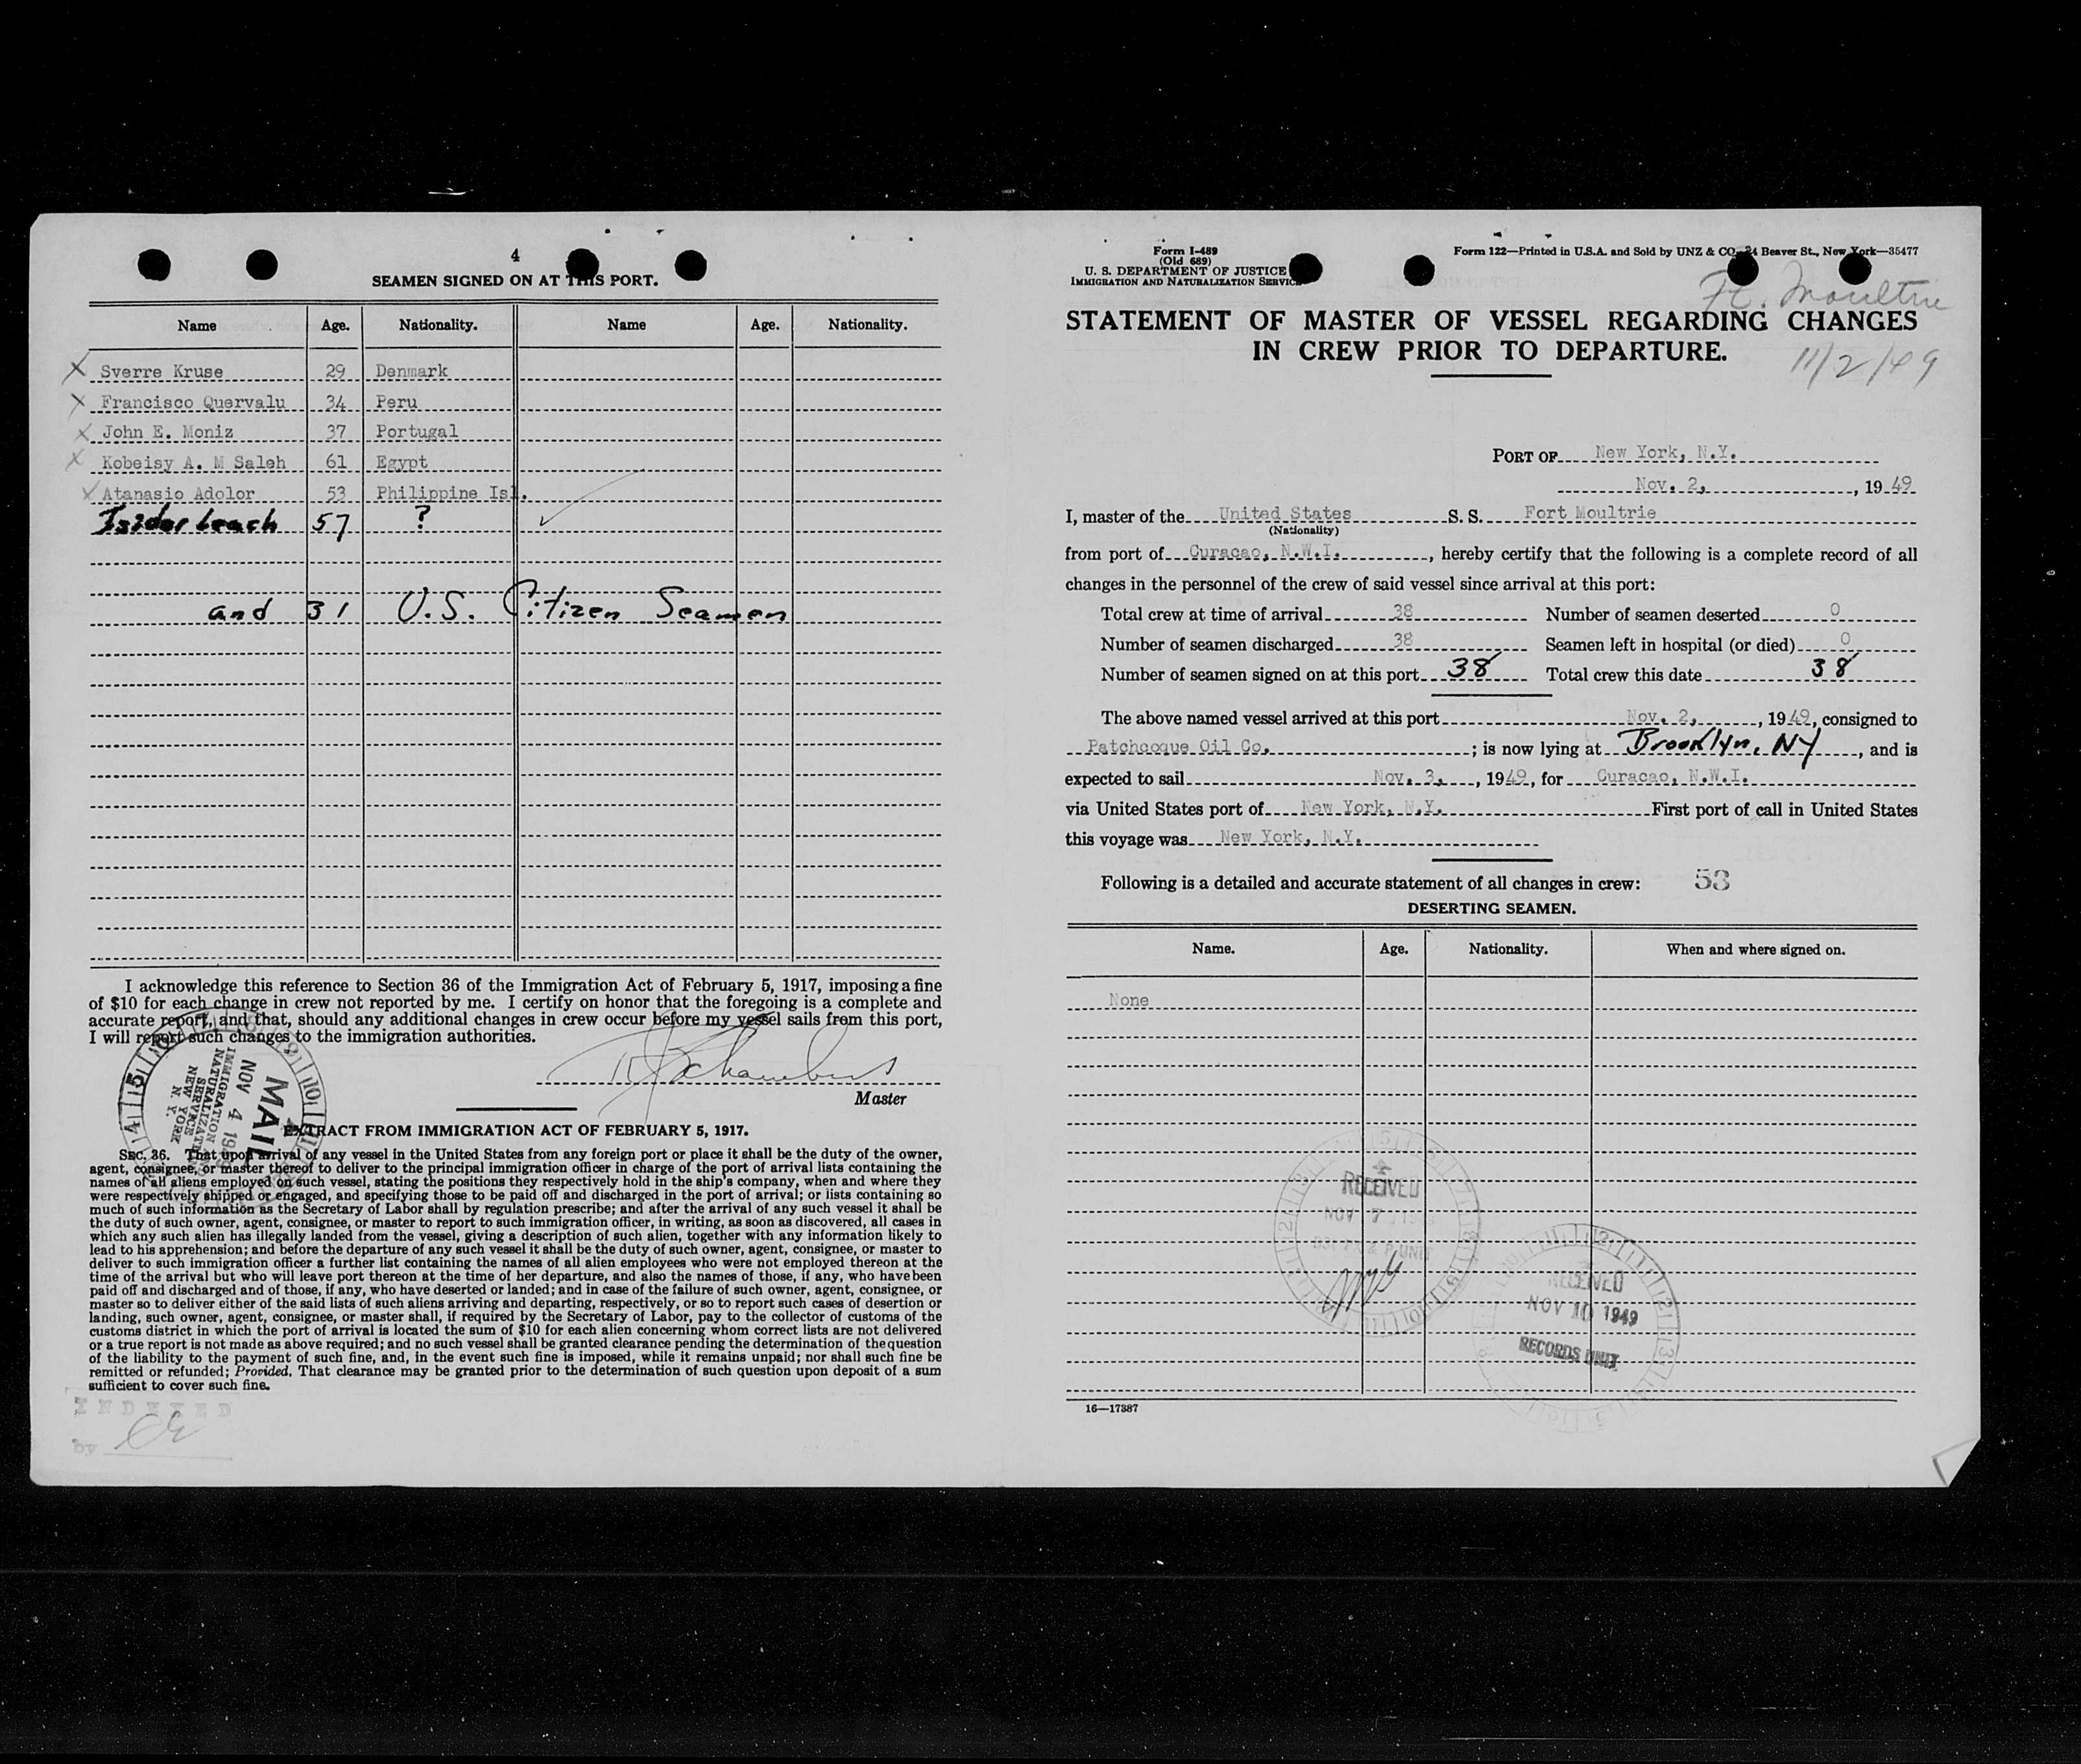 4
SEAMEN SIGNED ON AT THIS PORT.
Name Age. Nationality. Name Age. Nationality.
X Sverre Kruse 29 Denmark
X Francisco Quervalu 34 Peru
X John E. Moniz 37 Portugal
X Kobeisy A. M Saleh 61 Egypt
X Atanasio Adolor 53 Philippine Isl.
Isidor Leach 57 ? ✓
and 31 U.S. Citizen Seamen
I acknowledge this reference to Section 36 of the Immigration Act of February 5, 1917, imposing a fine
of $10 for each change in crew not reported by me. I certify on honor that the foregoing is a complete and
accurate report, and that, should any additional changes in crew occur before my vessel sails from this port,
I will report such changes to the immigration authorities.
Master
MAIL
NOV 4 19
IMMIGRATION
NATURALIZAT
SERVICE
NEW YORK
N. Y.
EXTRACT FROM IMMIGRATION ACT OF FEBRUARY 5, 1917.
SEC. 36. That upon arrival of any vessel in the United States from any foreign port or place it shall be the duty of the owner,
agent, consignee, or master thereof to deliver to the principal immigration officer in charge of the port of arrival lists containing the
names of all aliens employed on such vessel, stating the positions they respectively hold in the ship's company, when and where they
were respectively shipped or engaged, and specifying those to be paid off and discharged in the port of arrival; or lists containing so
much of such information as the Secretary of Labor shall by regulation prescribe; and after the arrival of any such vessel it shall be
the duty of such owner, agent, consignee, or master to report to such immigration officer, in writing, as soon as discovered, all cases in
which any such alien has illegally landed from the vessel, giving a description of such alien, together with any information likely to
lead to his apprehension; and before the departure of any such vessel it shall be the duty of such owner, agent, consignee, or master to
deliver to such immigration officer a further list containing the names of all alien employees who were not employed thereon at the
time of the arrival but who will leave port thereon at the time of her departure, and also the names of those, if any, who have been
paid off and discharged and of those, if any, who have deserted or landed; and in case of the failure of such owner, agent, consignee, or
master so to deliver either of the said lists of such aliens arriving and departing, respectively, or so to report such cases of desertion or
landing, such owner, agent, consignee, or master shall, if required by the Secretary of Labor, pay to the collector of customs of the
customs district in which the port of arrival is located the sum of $10 for each alien concerning whom correct lists are not delivered
or a true report is not made as above required; and no such vessel shall be granted clearance pending the determination of the question
of the liability to the payment of such fine, and, in the event such fine is imposed, while it remains unpaid; nor shall such fine be
remitted or refunded; Provided, That clearance may be granted prior to the determination of such question upon deposit of a sum
sufficient to cover such fine.
INDEXED
by
Form I-489
(Old 689)
U. S. DEPARTMENT OF JUSTICE
IMMIGRATION AND NATURALIZATION SERVICE
Form 122—Printed in U.S.A. and Sold by UNZ & CO., 24 Beaver St., New York—35477
Ft. Moultrie
STATEMENT OF MASTER OF VESSEL REGARDING CHANGES
IN CREW PRIOR TO DEPARTURE.
11/2/49
PORT OF New York, N.Y.
Nov. 2, , 19 49
I, master of the United States S. S. Fort Moultrie
(Nationality)
from port of Curacao, N.W.I. , hereby certify that the following is a complete record of all
changes in the personnel of the crew of said vessel since arrival at this port:
Total crew at time of arrival 38 Number of seamen deserted 0
Number of seamen discharged 38 Seamen left in hospital (or died) 0
Number of seamen signed on at this port 38 Total crew this date 38
The above named vessel arrived at this port Nov. 2, , 19 49, consigned to
Patchogque Oil Co. ; is now lying at Brooklyn, NY , and is
expected to sail Nov. 3, , 19 49, for Curacao, N.W.I.
via United States port of New York, N.Y. First port of call in United States
this voyage was New York, N.Y.
Following is a detailed and accurate statement of all changes in crew: 53
DESERTING SEAMEN.
Name. Age. Nationality. When and where signed on.
None
RECEIVED
NOV 7
RECEIVED
NOV 10 1949
RECORDS UNIT
16—17387